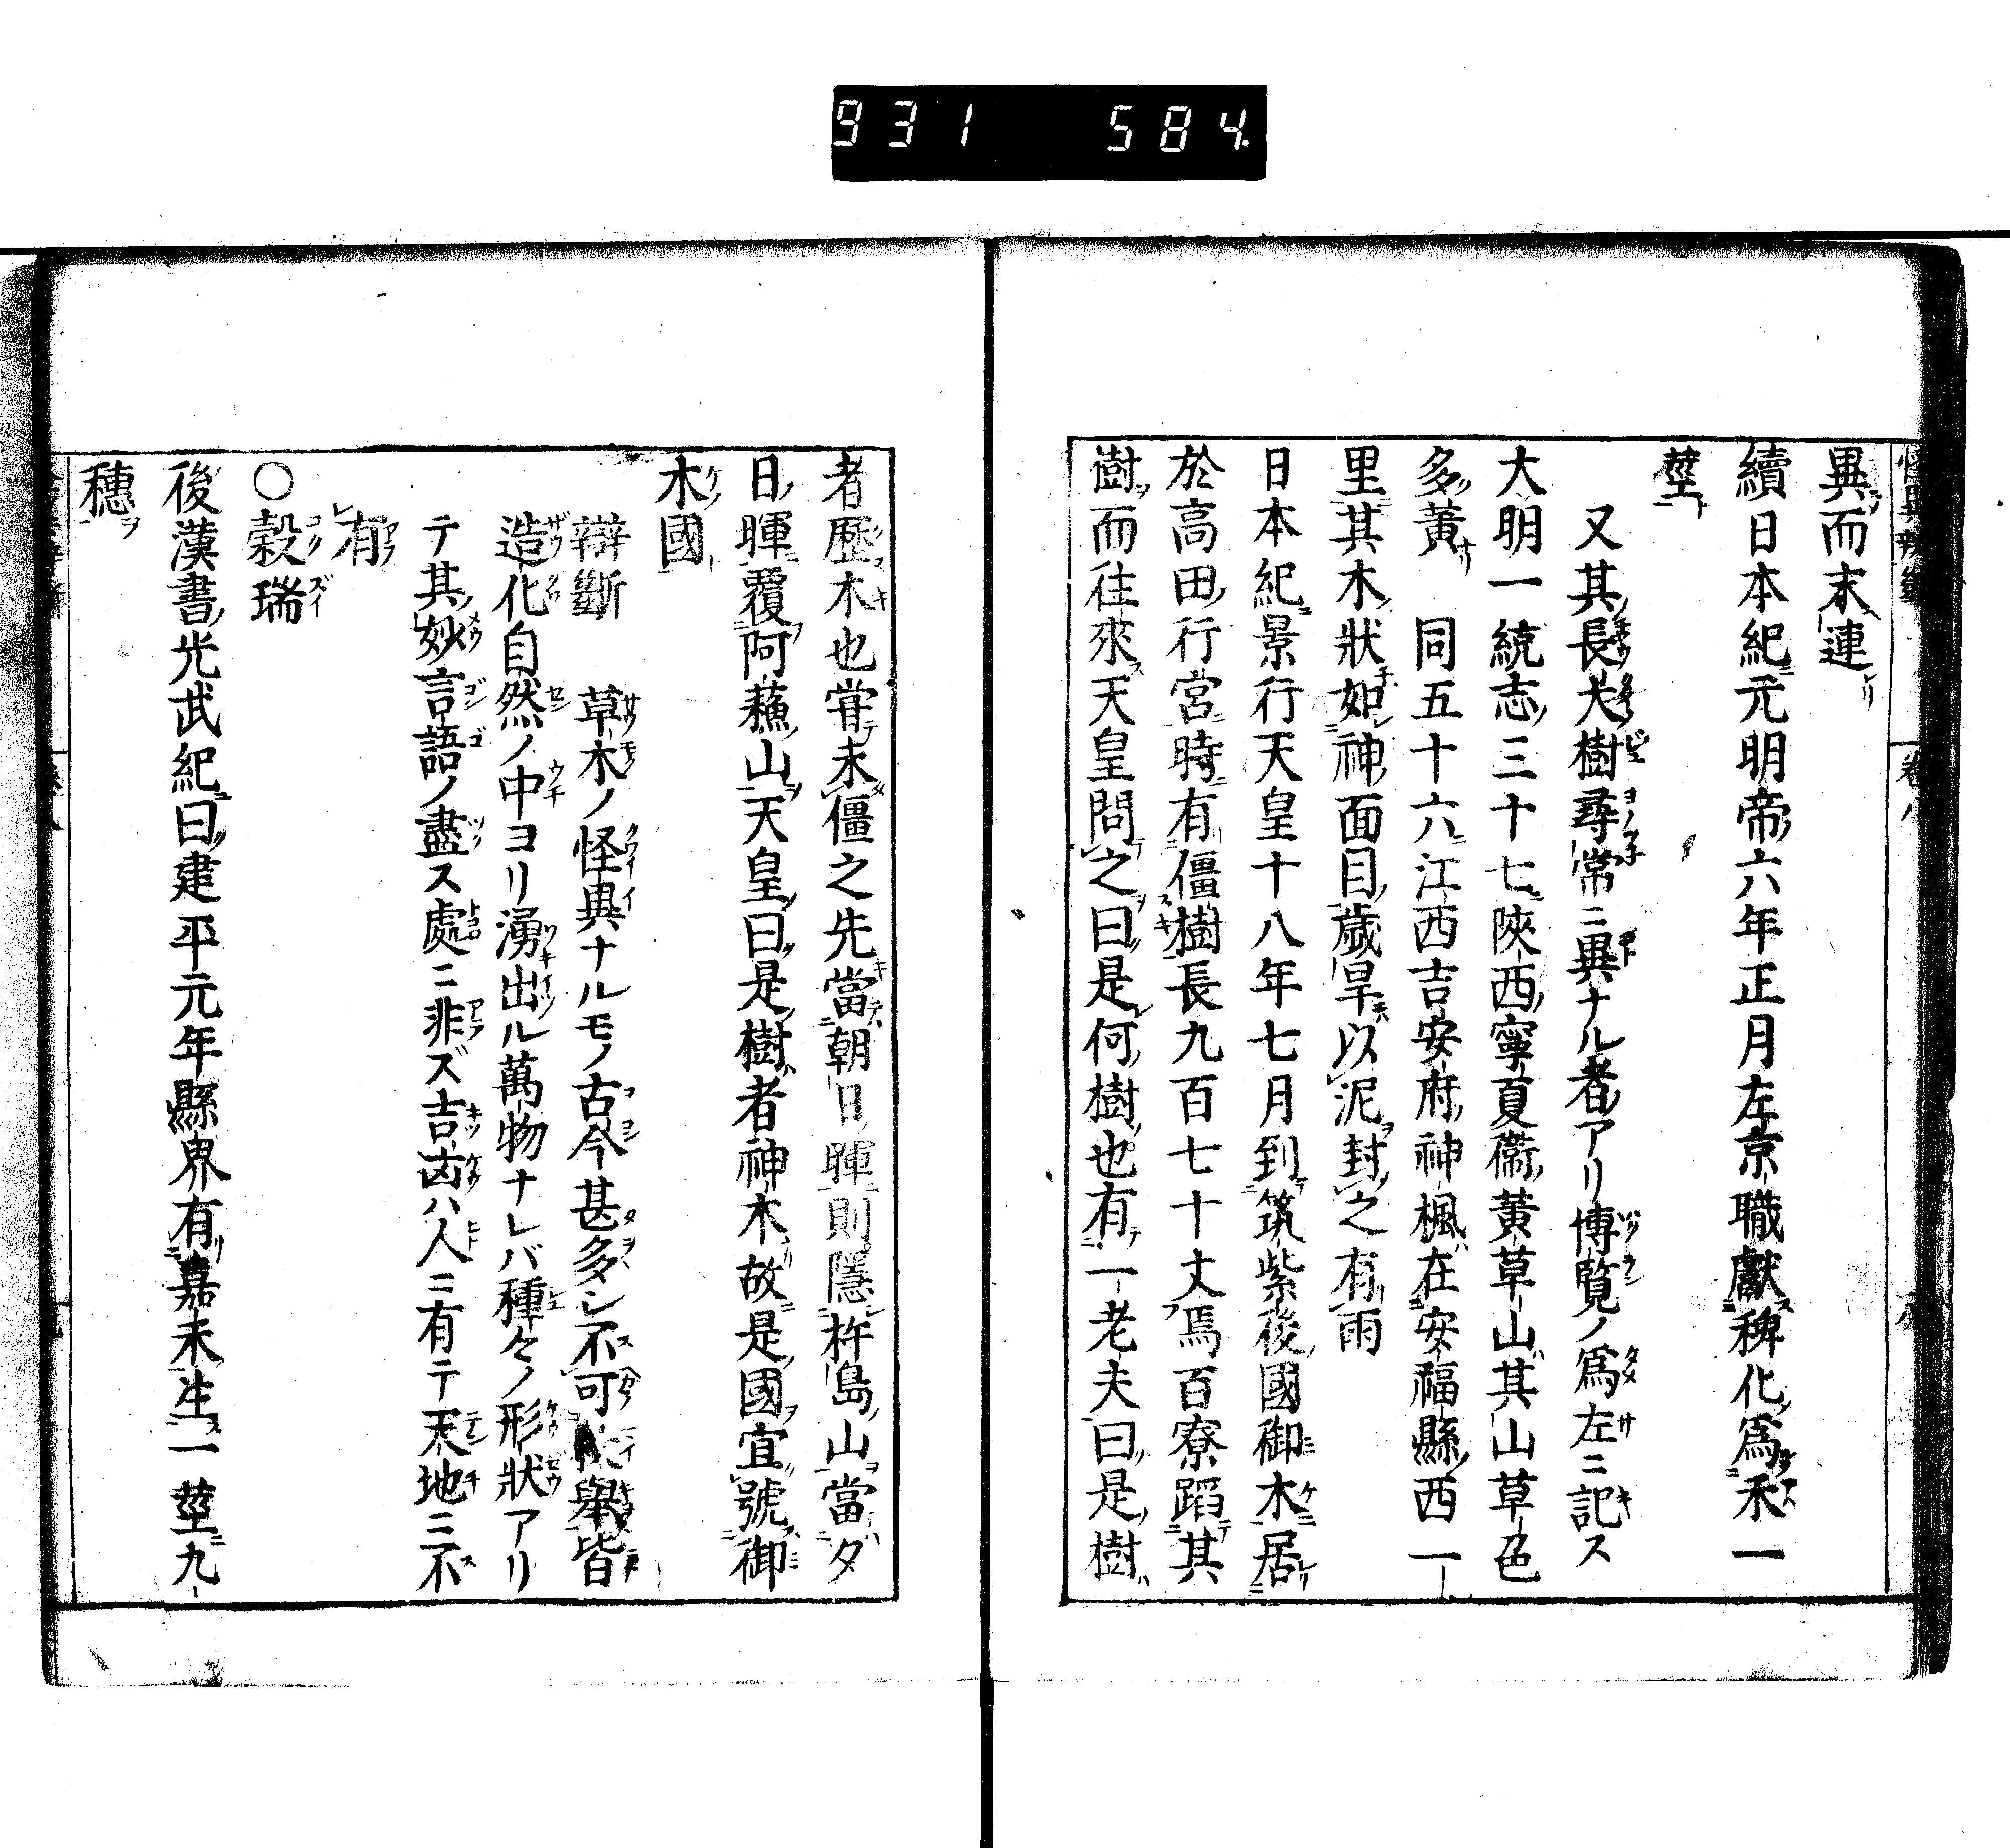 931 584
異而末連
續日本紀元明帝六年正月左京職獻稗化爲禾一
莖
又其長大樹尋常ニ異ナル者アリ博覧ノ爲左ニ記ス
大明一統志三十七陝西寧夏衞黃草山其山草色
多黃 同五十六江西吉安府神楓在安福縣西一
里其木狀如神面目歲旱以泥封之有雨
日本紀景行天皇十八年七月到筑紫後國御木居
於高田行宮時有僵樹長九百七十丈焉百寮蹈其
樹而往來天皇問之曰是何樹也有一老夫曰是樹
者歷木也甞未僵之先當朝日暉則隱杵島山當夕
日暉覆阿蘓山天皇曰是樹者神木故是國宜號御
木國
辯斷 草木ノ怪異ナルモノ古今甚多シ不可舉皆
造化自然ノ中ヨリ湧出ル萬物ナレバ種々ノ形狀アリ
テ其妙言語ノ盡ス處ニ非ズ吉凶ハ人ニ有テ天地ニ不
有
○穀瑞
後漢書光武紀曰建平元年縣界有嘉禾生一莖九
穗